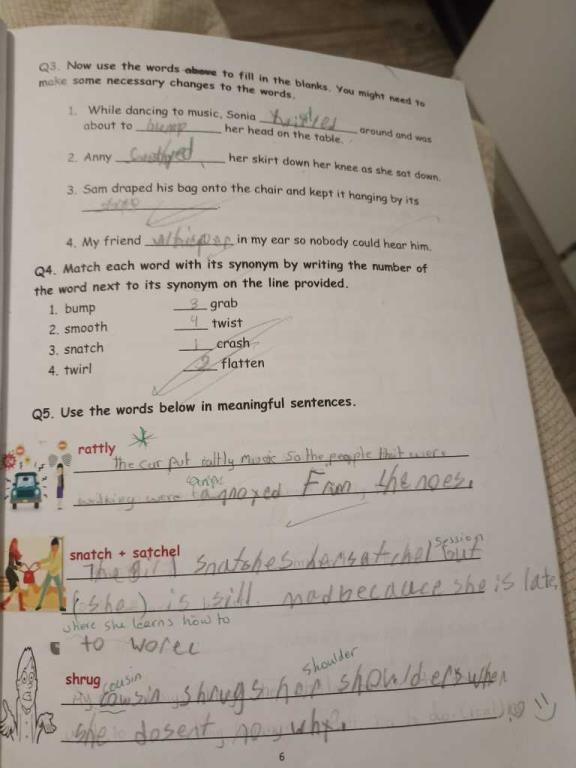 Q3. Now use the words above to fill in the blanks. You might need to
make some necessary changes to the words.
1. While dancing to music, Sonia twirled around and was
about to bump her head on the table.
2. Anny her skirt down her knee as she sat down.
3. Sam draped his bag onto the chair and kept it hanging by its
4. My friend whisper in my ear so nobody could hear him.
Q4. Match each word with its synonym by writing the number of
the word next to its synonym on the line provided.
1. bump 3 grab
2. smooth 4 twist
3. snatch 1 crash
4. twirl 2 flatten
Q5. Use the words below in meaningful sentences.
rattly
the car put raltly music so the people that were
annoyed. From the noes.
snatch + satchel
session
The girl snatches her satchel but
(she) is sill mad because she is late
where she learns how to
to
shrug cousin shoulder
My cousin shrugs her shoulders when
she dosent no why.
6